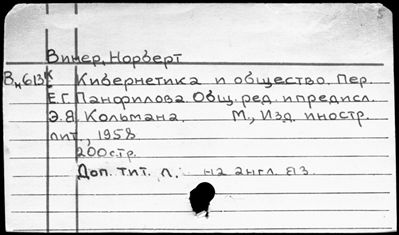 Винер, Норберт
Вн613к Кибернетика и общество. Пер.
Е.Г. Панфилова. Общ. ред. и предисл.
Э.Я. Кольмана. М., Изд. иностр.
лит., 1958
200 стр.
Доп. тит. л. на англ. яз.